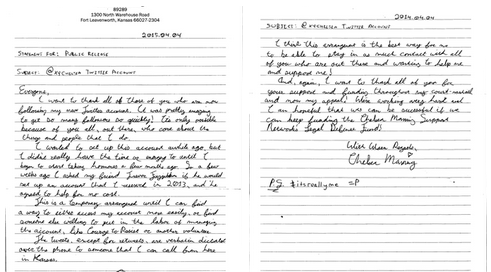 89289
1300 North Warehouse Road
Fort Leavenworth, Kansas 66027-2304
2015.04.04
STATEMENT FOR: PUBLIC RELEASE
SUBJECT: @XYCHELSEA TWITTER ACCOUNT
Everyone,
I want to thank all of those of you who are now
following my new Twitter account. It was pretty amazing
to get so many followers so quickly! It's only possible
because of you all, out there, who care about the
things and people that I do.
I wanted to set up this account awhile ago, but
I didn't really have the time or energy to until I
began to start taking hormones a few months ago. So, a few
weeks ago I asked my friend if he would
set up an account that I reserved in 2013, and he
agreed to help for no cost.
This is a temporary arrangement until I can find
a way to either access my account more easily, or find
someone else willing to put in the labor of managing
the account, like Courage to Resist or another volunteer.
The tweets, except for retweets, are verbatim dictated
over the phone to someone that I can call from here
in Kansas.
2015.04.04
SUBJECT: @XYCHELSEA TWITTER ACCOUNT
I think this arrangement is the best way for me
to be able to stay in as much contact with all
of you who are out there and wanting to help me
and support me!
And, again, I want to thank all of you for
your support and funding throughout my court-martial
and now my appeal. We're working very hard and
I am hopeful that we can be successful if we
can keep funding the Chelsea Manning Support
Network Legal Defense Fund!
With Warm Regards,
Chelsea Manning
PS #itsreallyme =P